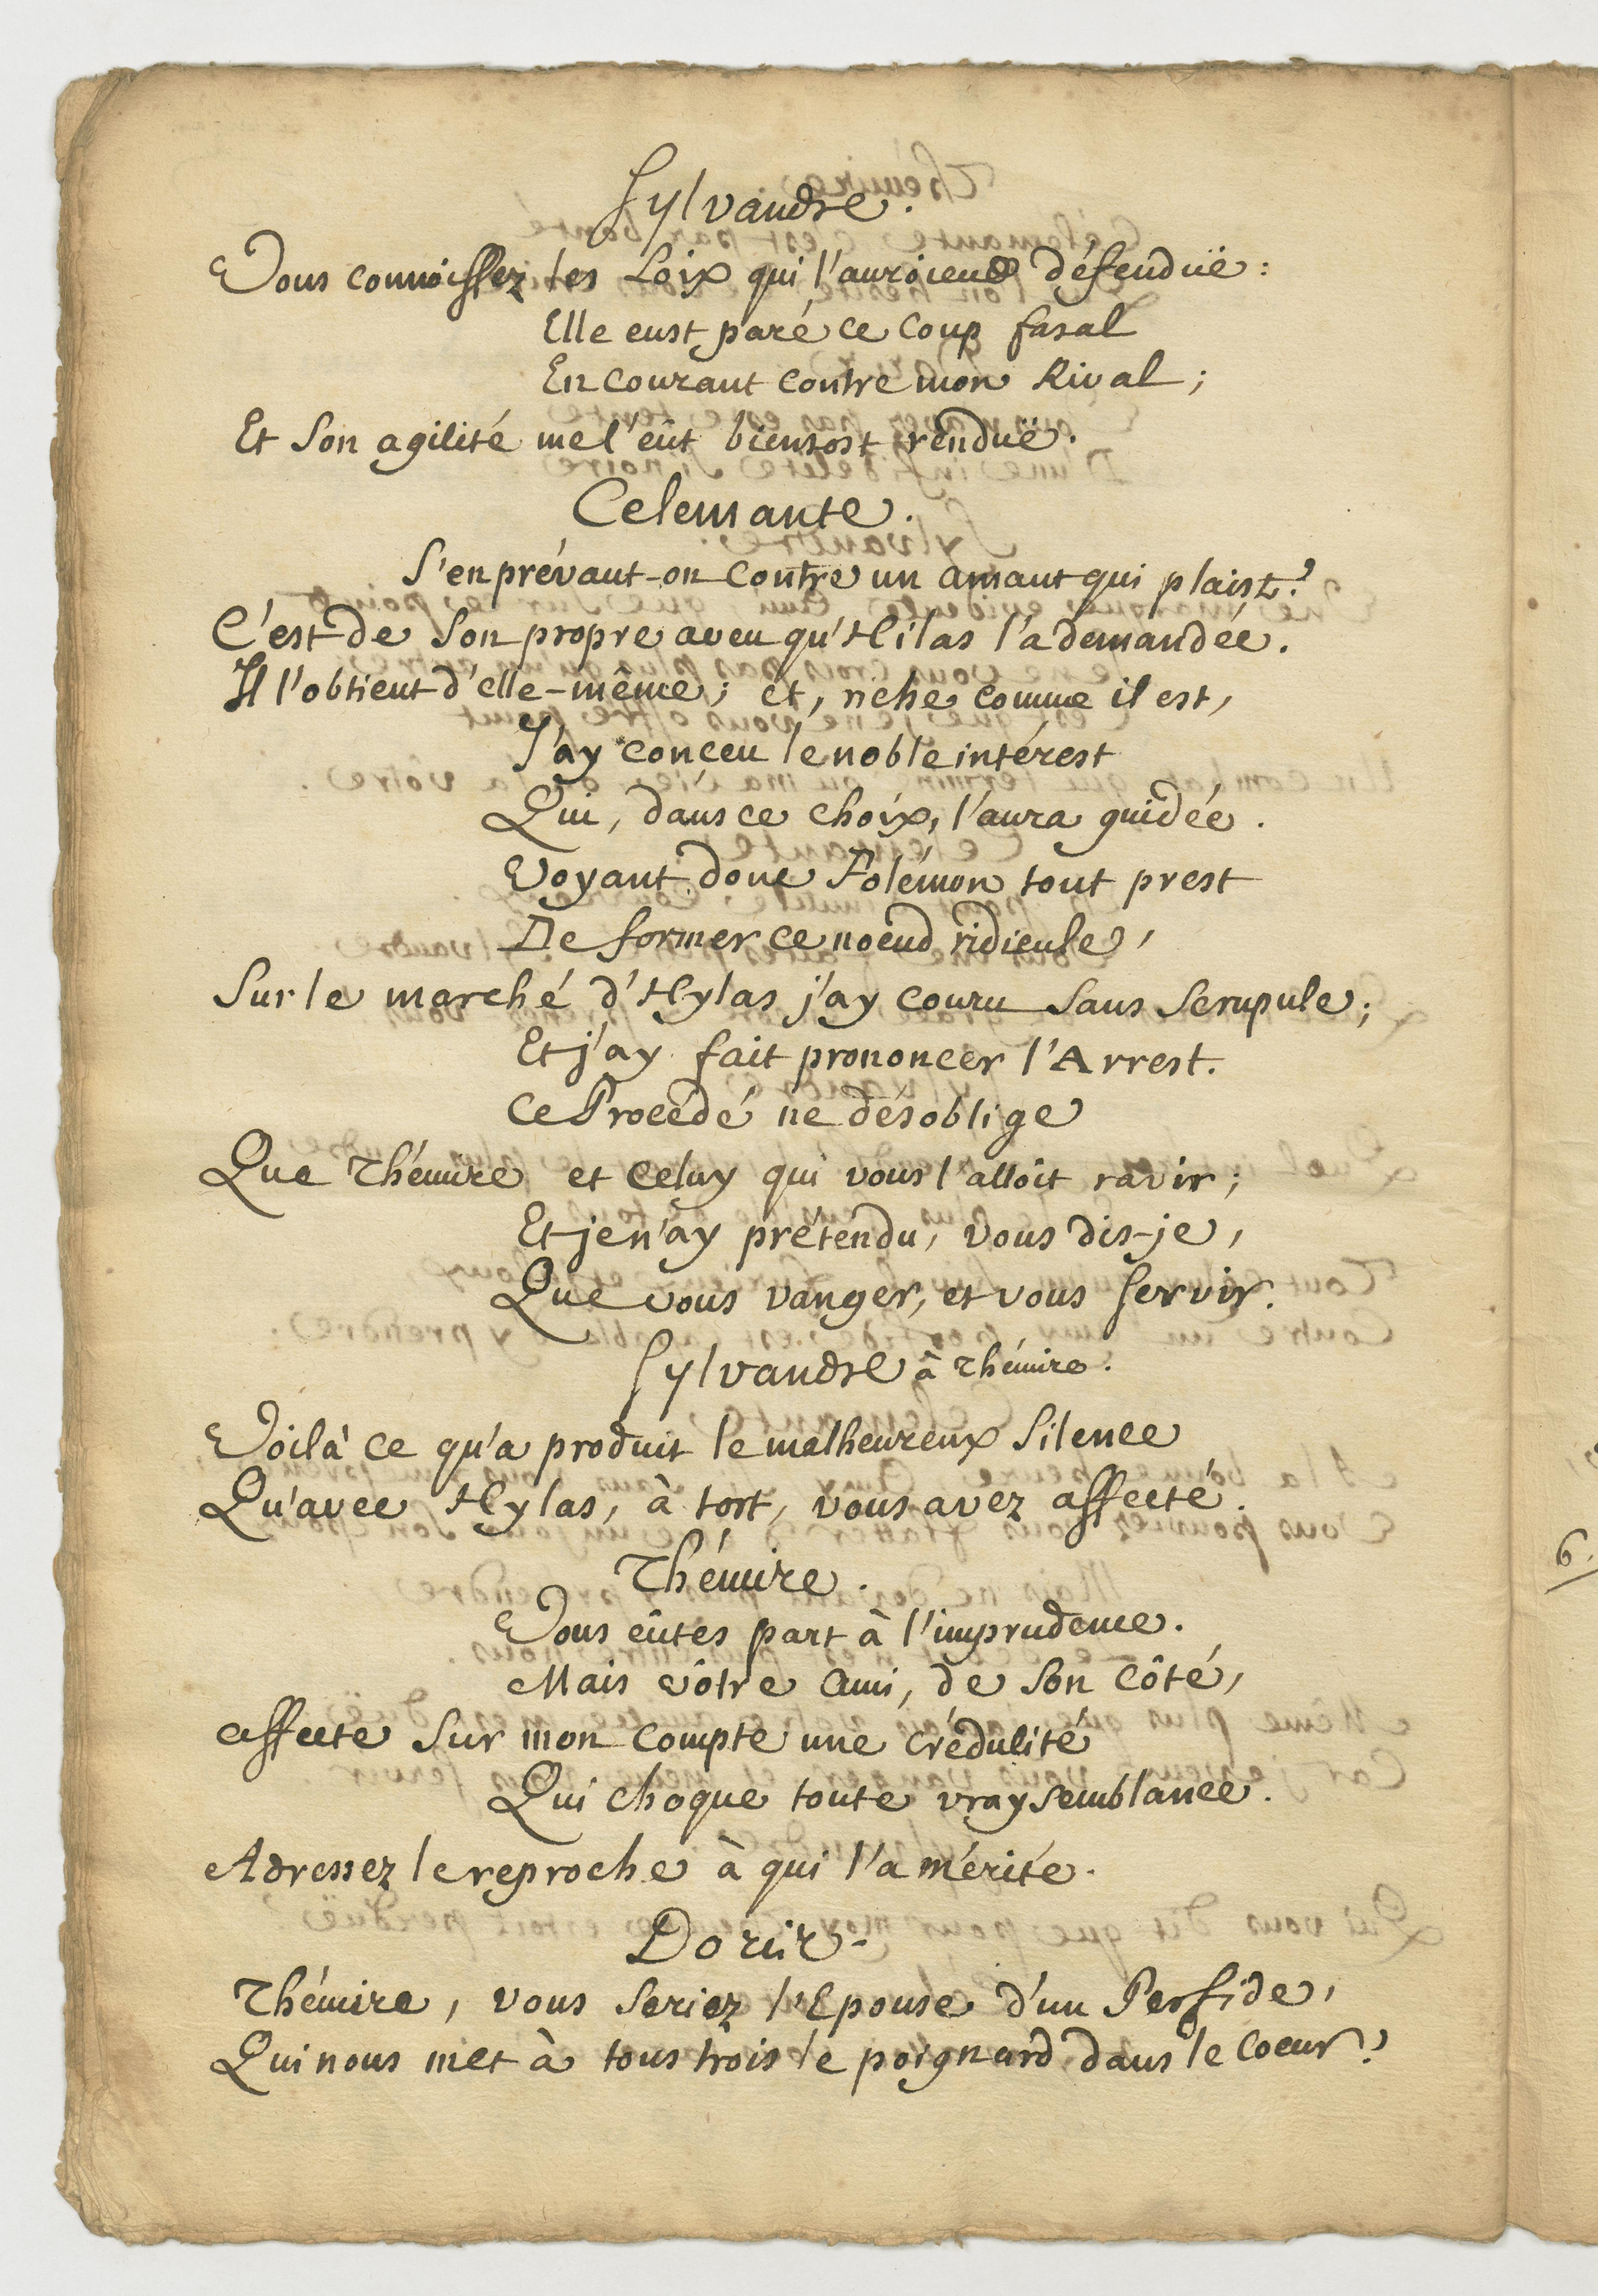 Sylvandre.
Vous connoissez les Loix qui l'auroient défenduë:
Elle eust paré ce coup fatal
En courant contre mon Rival;
Et son agilité me l'eût bientost renduë.
Celemante.
S'en prévaut-on contre un amant qui plaist?
C'est de son propre aveu qu'Hilas l'a demandée.
Il l'obtient d'elle-même; et, riche comme il est,
J'ay conceu le noble intérest
Qui, dans ce choix, l'aura guidée.
Voyant donc Polémon tout prest
De former ce noeud ridicule,
Sur le marché d'Hylas j'ay couru sans scrupule;
Et j'ay fait prononcer l'Arrest.
Ce Procédé ne désoblige
Que Thémire et celuy qui vous l'alloit ravir;
Et je n'ay prétendu, vous dis-je,
Que vous vanger, et vous servir.
Sylvandre à Thémire.
Voilà ce qu'a produit le malheureux silence
Qu'avec Hylas, à tort, vous avez affecté.
Thémire.
Vous eûtes part à l'imprudence.
Mais vôtre ami, de son côté,
affecte sur mon compte une crédulité
Qui choque toute vraysemblance.
Adressez le reproche à qui l'a mérité.
Doris.
Thémire, vous seriez l'Epouse d'un Perfide,
Qui nous met à tous trois le poignard dans le coeur?
6.